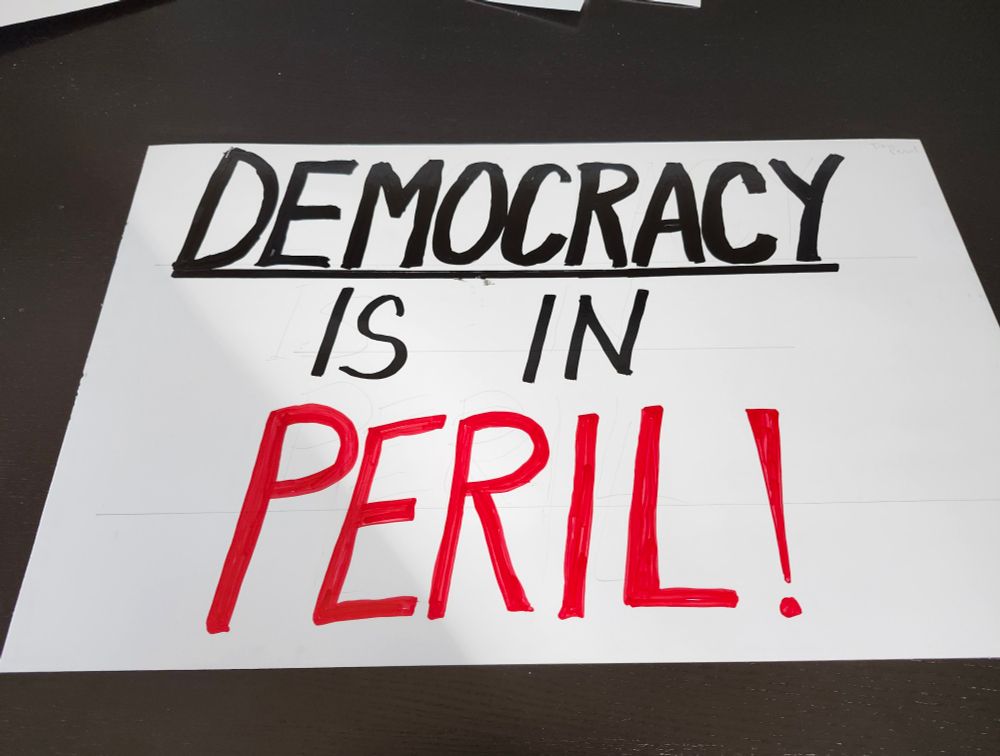 DEMOCRACY
IS IN
PERIL!